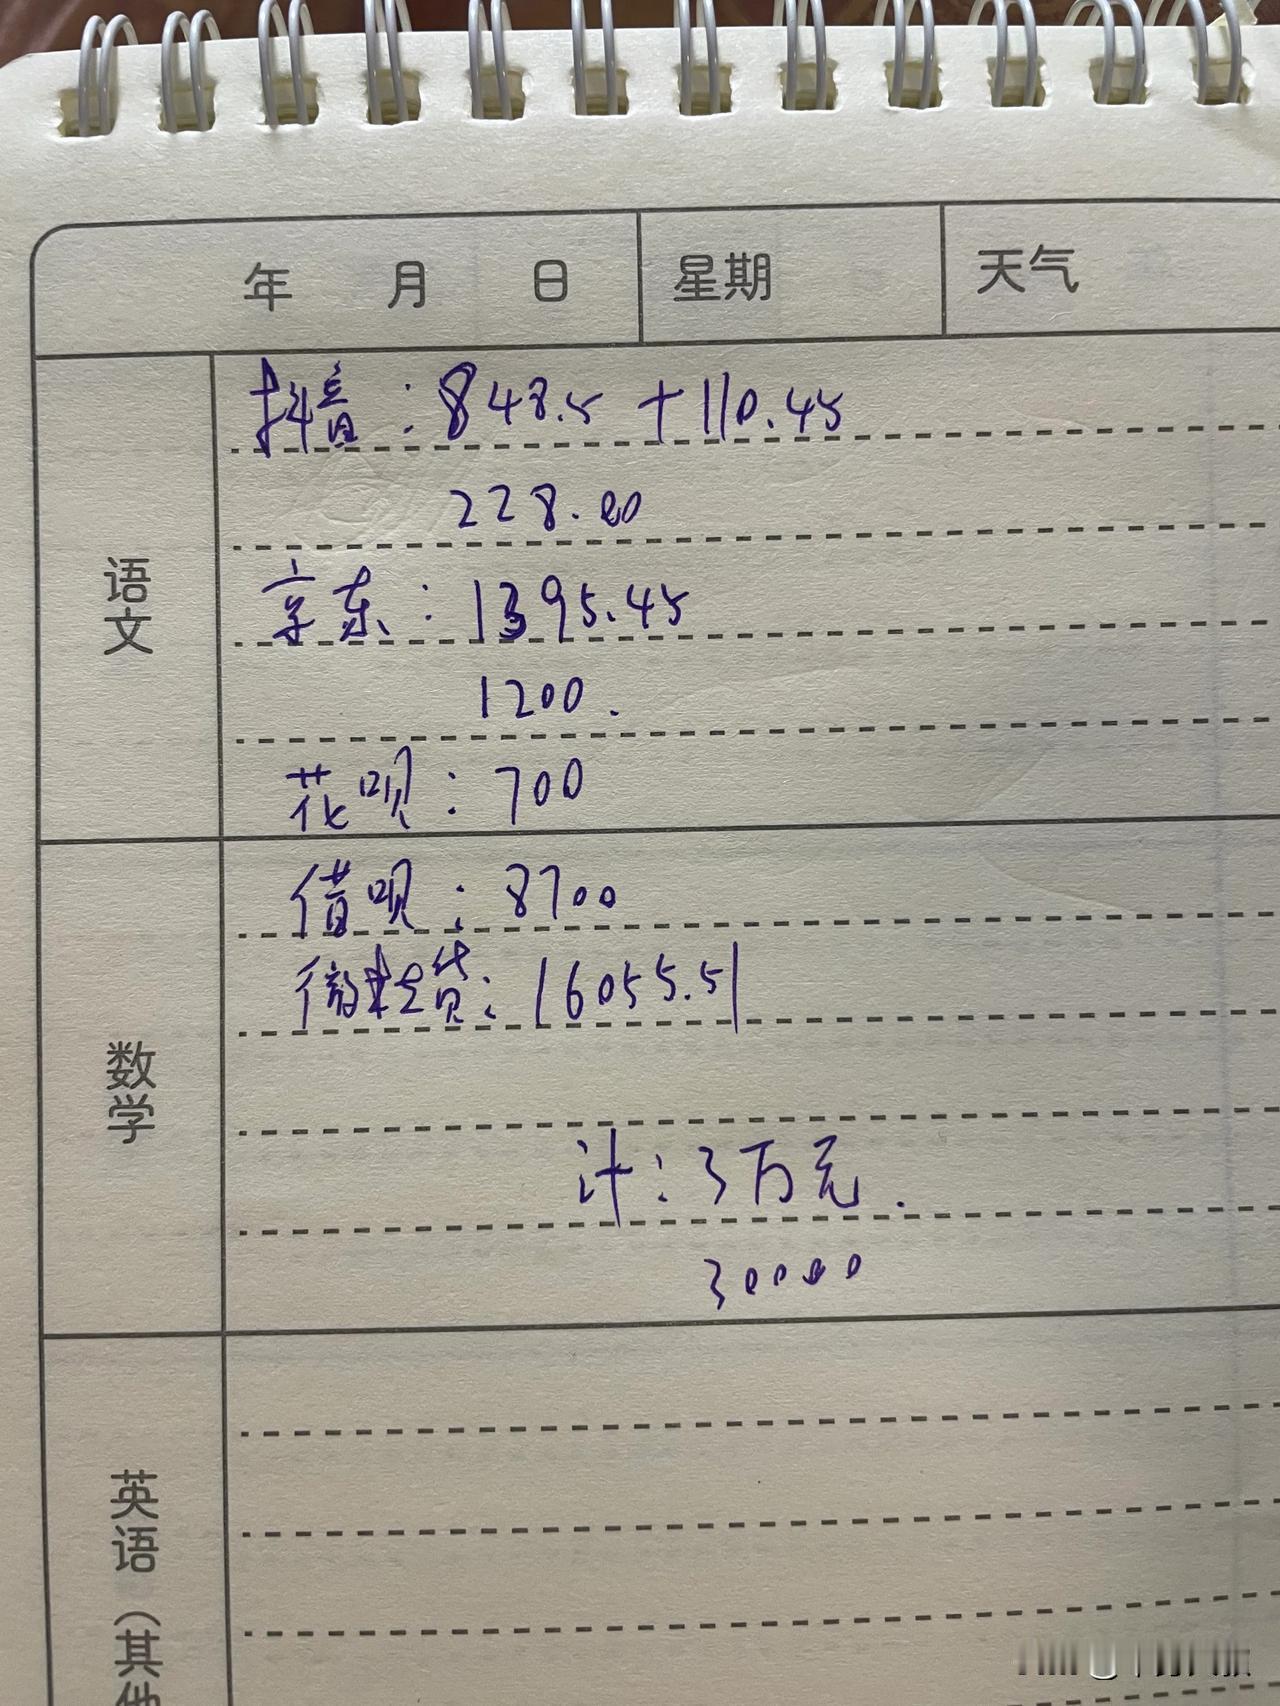 年 月 日 星期 天气
抖音：848.5+110.45
228.00
京东：1395.45
1200.
花呗：700
语文
借呗：8700
微粒贷：16055.51
计：3万元.
30000
数学
英语（其他